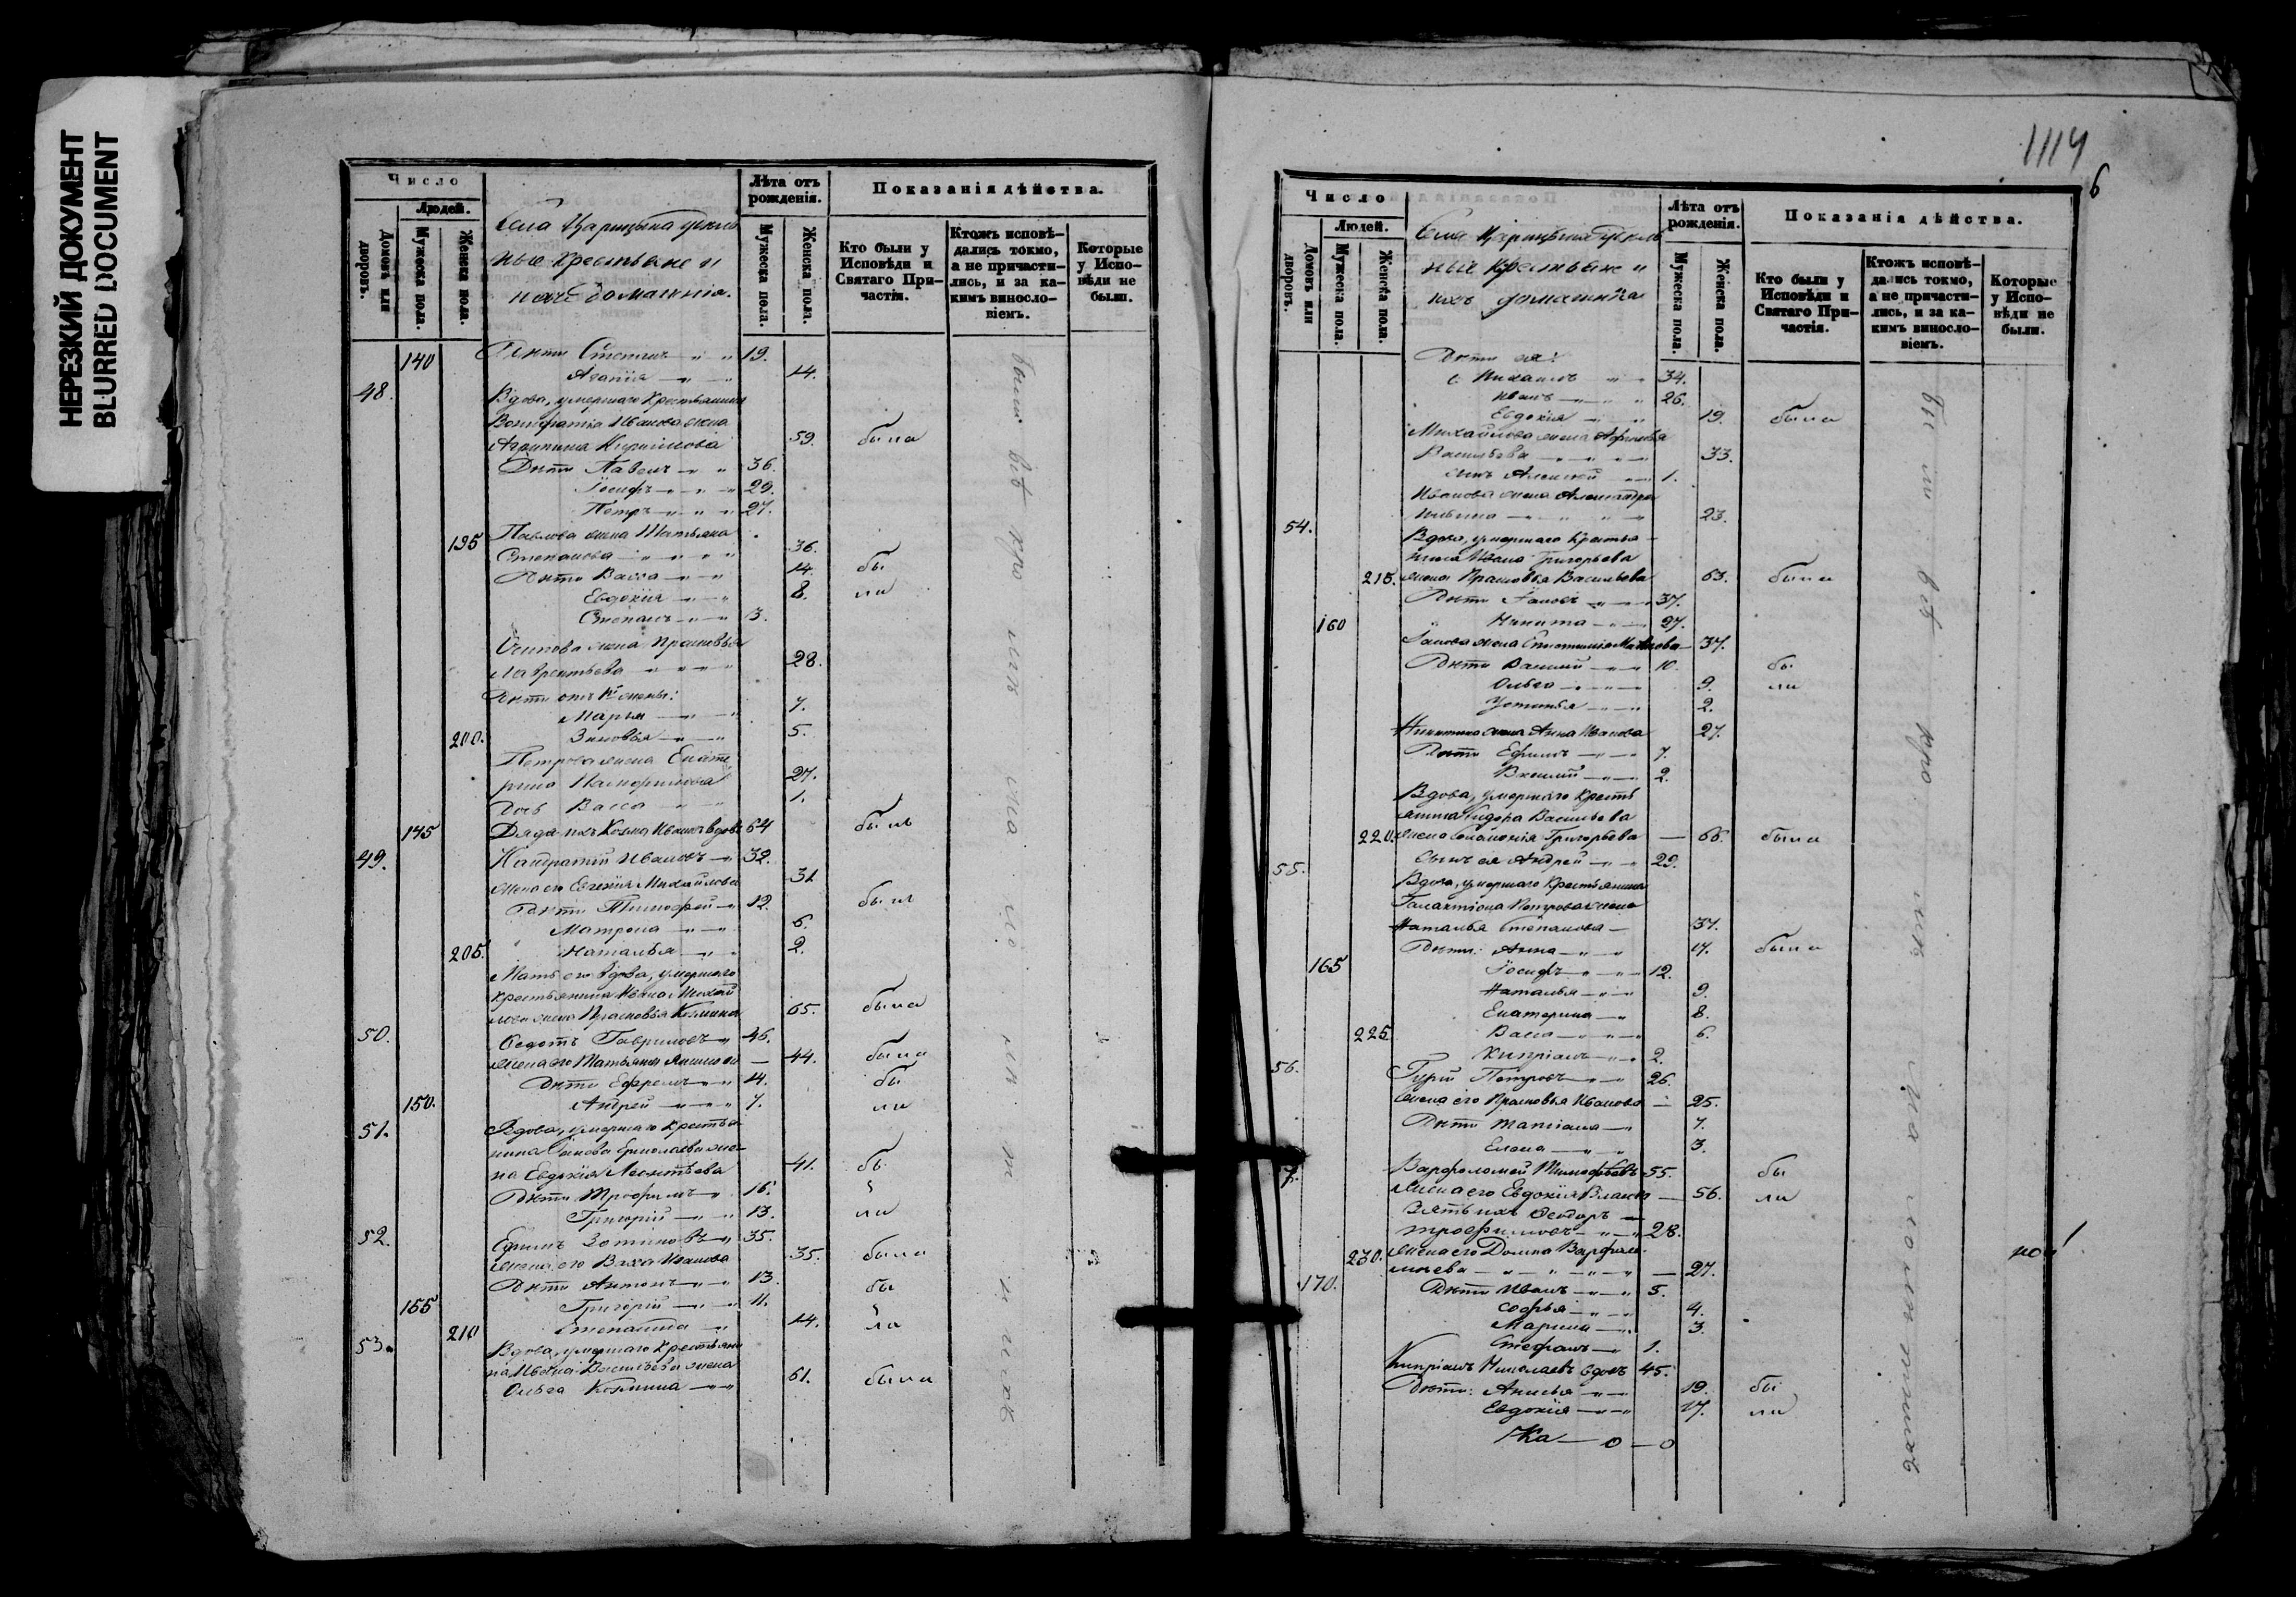 НЕРЕЗКИЙ ДОКУМЕНТ
BLURRED DOCUMENT
Число
Людей.
Домовъ или дворовъ.
Мужеска пола.
Женска пола.
Села Царицына удѣль
ные крестьяне и
ихъ домашнія.
Лѣта отъ рожденія.
Мужеска пола.
Женска пола.
Показанія дѣйства.
Кто были у Исповѣди и Святаго Причастія.
Ктожъ исповѣдались токмо, а не причастились, и за какимъ винословіемъ.
Которые у Исповѣди не были.
140 Дѣти Степанъ 19.
Агапія 14.
48. Вдова, умершаго крестьянина
Вонифатія Иванова жена
Агрипина 59. была
Дѣти Павелъ 36.
Іосифъ 29.
Петръ 27.
Павлова жена Татьяна
195 Степанова 36.
Дѣти Васса 14. бы
Евдокія 8. ли
Степанъ 3.
Осипова жена Прасковья
Лаврентьева 28.
Дѣти отъ 1й жены:
Марья 7.
200. Зиновья 5.
Петрова жена Екате
рина Памфилова 27.
Дочь Васса 1.
145 Дядя ихъ Козма Ивановъ вдовъ 64 былъ
49. Кандратій Ивановъ 32.
жена его Евгенія Михайлова 31
Дѣти Тимофей 12. былъ
Матрона 6.
205. Наталья 2.
Мать его вдова, умершаго
крестьянина Ивана Михай
лова жена Прасковья Козмина 65. была
50. Ѳедотъ Гавриловъ 46.
жена его Татьяна 44. была
Дѣти Ефремъ 14. бы
150. Андрей 7. ли
51. Вдова, умершаго крестья
нина Ермолаева же
на Евдокія Леонтьева 41. бы
Дѣти Трофимъ 16.
Григорій 13. ли
52. Ефимъ Зотиковъ 35.
жена его Васса Иванова 35. была
Дѣти Антонъ 13. бы
155 Григорій 11.
210 Степанида 14. ла
53. Вдова, умершаго крестьяни
на Ивана Васильева жена
Ольга Козмина 61. была
1114
6
Число
Людей.
Домовъ или дворовъ.
Мужеска пола.
Женска пола.
Села Царицына удѣль
ные крестьяне и
ихъ домашнія
Лѣта отъ рожденія.
Мужеска пола.
Женска пола.
Показанія дѣйства.
Кто были у Исповѣди и Святаго Причастія.
Ктожъ исповѣдались токмо, а не причастились, и за какимъ винословіемъ.
Которые у Исповѣди не были.
Дѣти ея:
Михаилъ 34.
Иванъ 26.
Евдокія 19. была
Михайлова жена Афимья
Васильева 33.
сынъ Алексѣй 1.
Иванова жена Александра
Ильина 23.
54. Вдова, умершаго крестья
нина Ивана Григорьева
215. жена Прасковья Васильева 63. была
Дѣти Іаковъ 37.
160 Никита 27.
Іакова жена 37.
Дѣти Василій 10. бы
Ольга 9. ли
Устинья 2.
Никитина жена Анна Иванова 27.
Дѣти Ефимъ 7.
Василій 2.
Вдова, умершаго кресть
янина Сидора Васильева
220. жена Соломонія Григорьева 66. была
Сынъ ея Андрей 29.
55. Вдова, умершаго крестьянина
Галактіона Петрова жена
Наталья Степанова 37.
Дѣти: Анна 17. была
165 Іосифъ 12.
Наталья 9.
Екатерина 8.
225 Васса 6.
Кипріанъ 2.
56. Гурій Петровъ 26.
жена его Прасковья Иванова 25.
Дѣти Татіана 7.
Елена 3.
7. Варфоломей Тимофѣевъ 55. бы
жена его Евдокія 56. ли
Зять ихъ Ѳедоръ
Трофимовъ 28.
230. жена его Домна Варфоло
мѣева 27.
170. Дѣти Иванъ 5.
Софья 4.
Марина 3.
Стефанъ 1.
Кипріанъ Николаевъ вдовъ 45.
Дѣти: Анисья 19. бы
Евдокія 17. ли